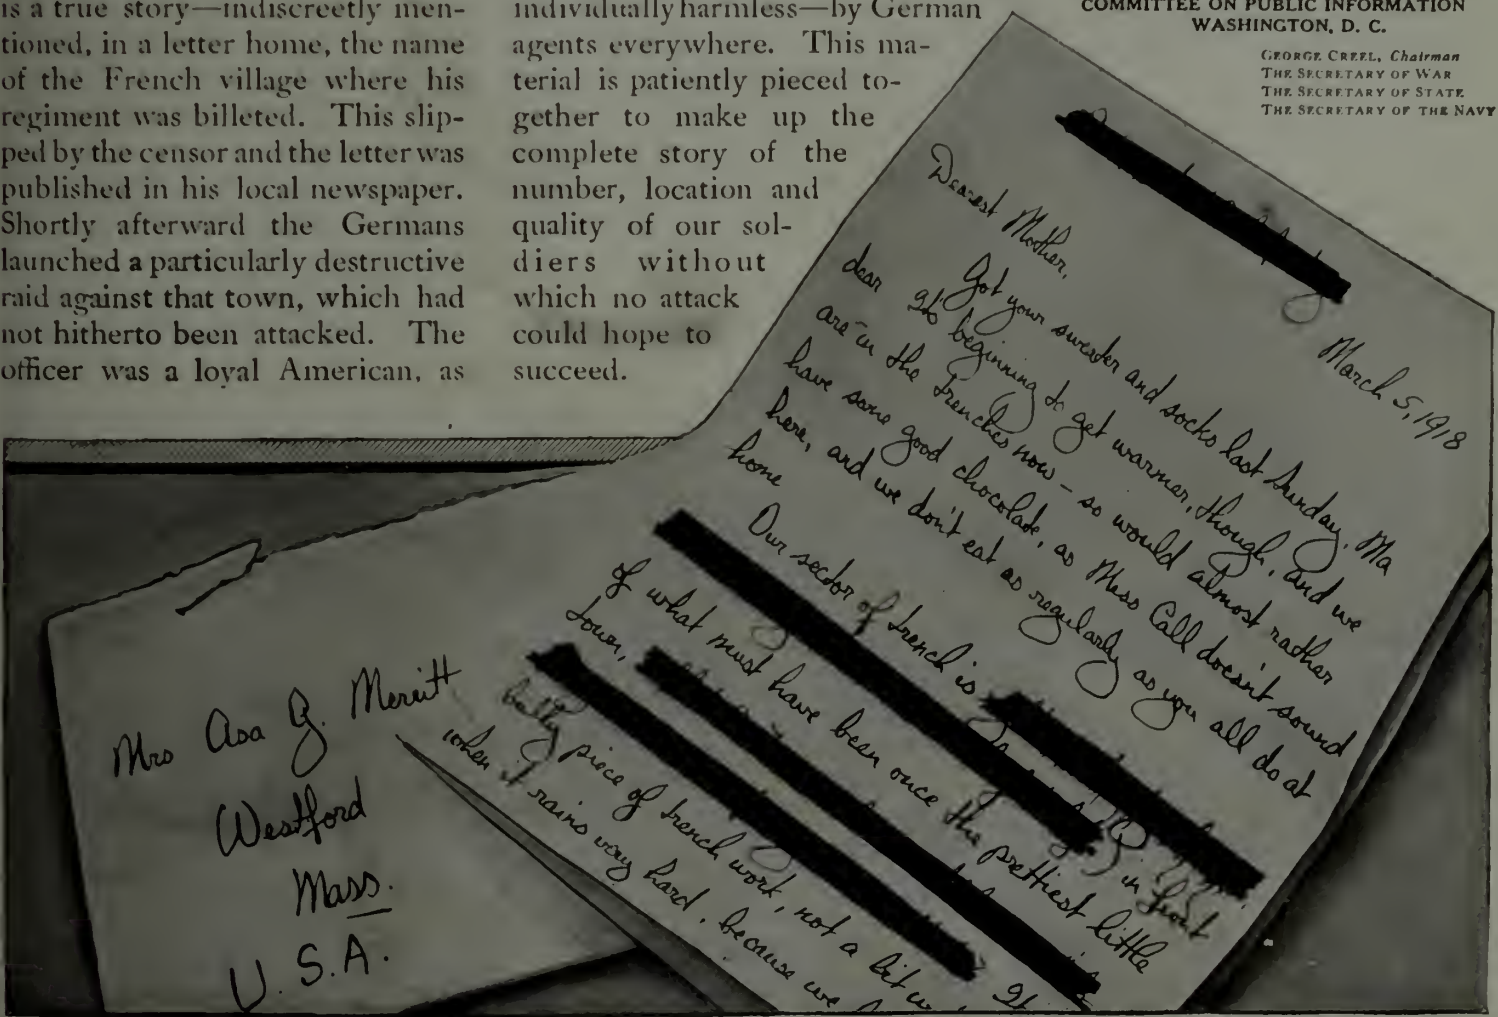 is a true story—indiscreetly men-
tioned, in a letter home, the name
of the French village where his
regiment was billeted. This slip-
ped by the censor and the letter was
published in his local newspaper.
Shortly afterward the Germans
launched a particularly destructive
raid against that town, which had
not hitherto been attacked. The
officer was a loyal American, as
individually harmless—by German
agents everywhere. This ma-
terial is patiently pieced to-
gether to make up the
complete story of the
number, location and
quality of our sol-
diers without
which no attack
could hope to
succeed.
COMMITTEE ON PUBLIC INFORMATION
WASHINGTON, D. C.
GEORGE CREEL, Chairman
THE SECRETARY OF WAR
THE SECRETARY OF STATE
THE SECRETARY OF THE NAVY
March 5, 1918
Dearest Mother,
Got your sweater and socks last Sunday, Ma
dear It's beginning to get warmer, though, and we
are in the trenches now – so would almost rather
have some good chocolate, as Mess Call doesn't sound
here, and we don't eat as regularly as you all do at
home
Our sector of trench is
in front
of what must have been once the prettiest little
town,
It
bully piece of trench work, not a bit
when it rains very hard, because we
Mrs Asa G. Merritt
Westford
Mass.
U.S.A.